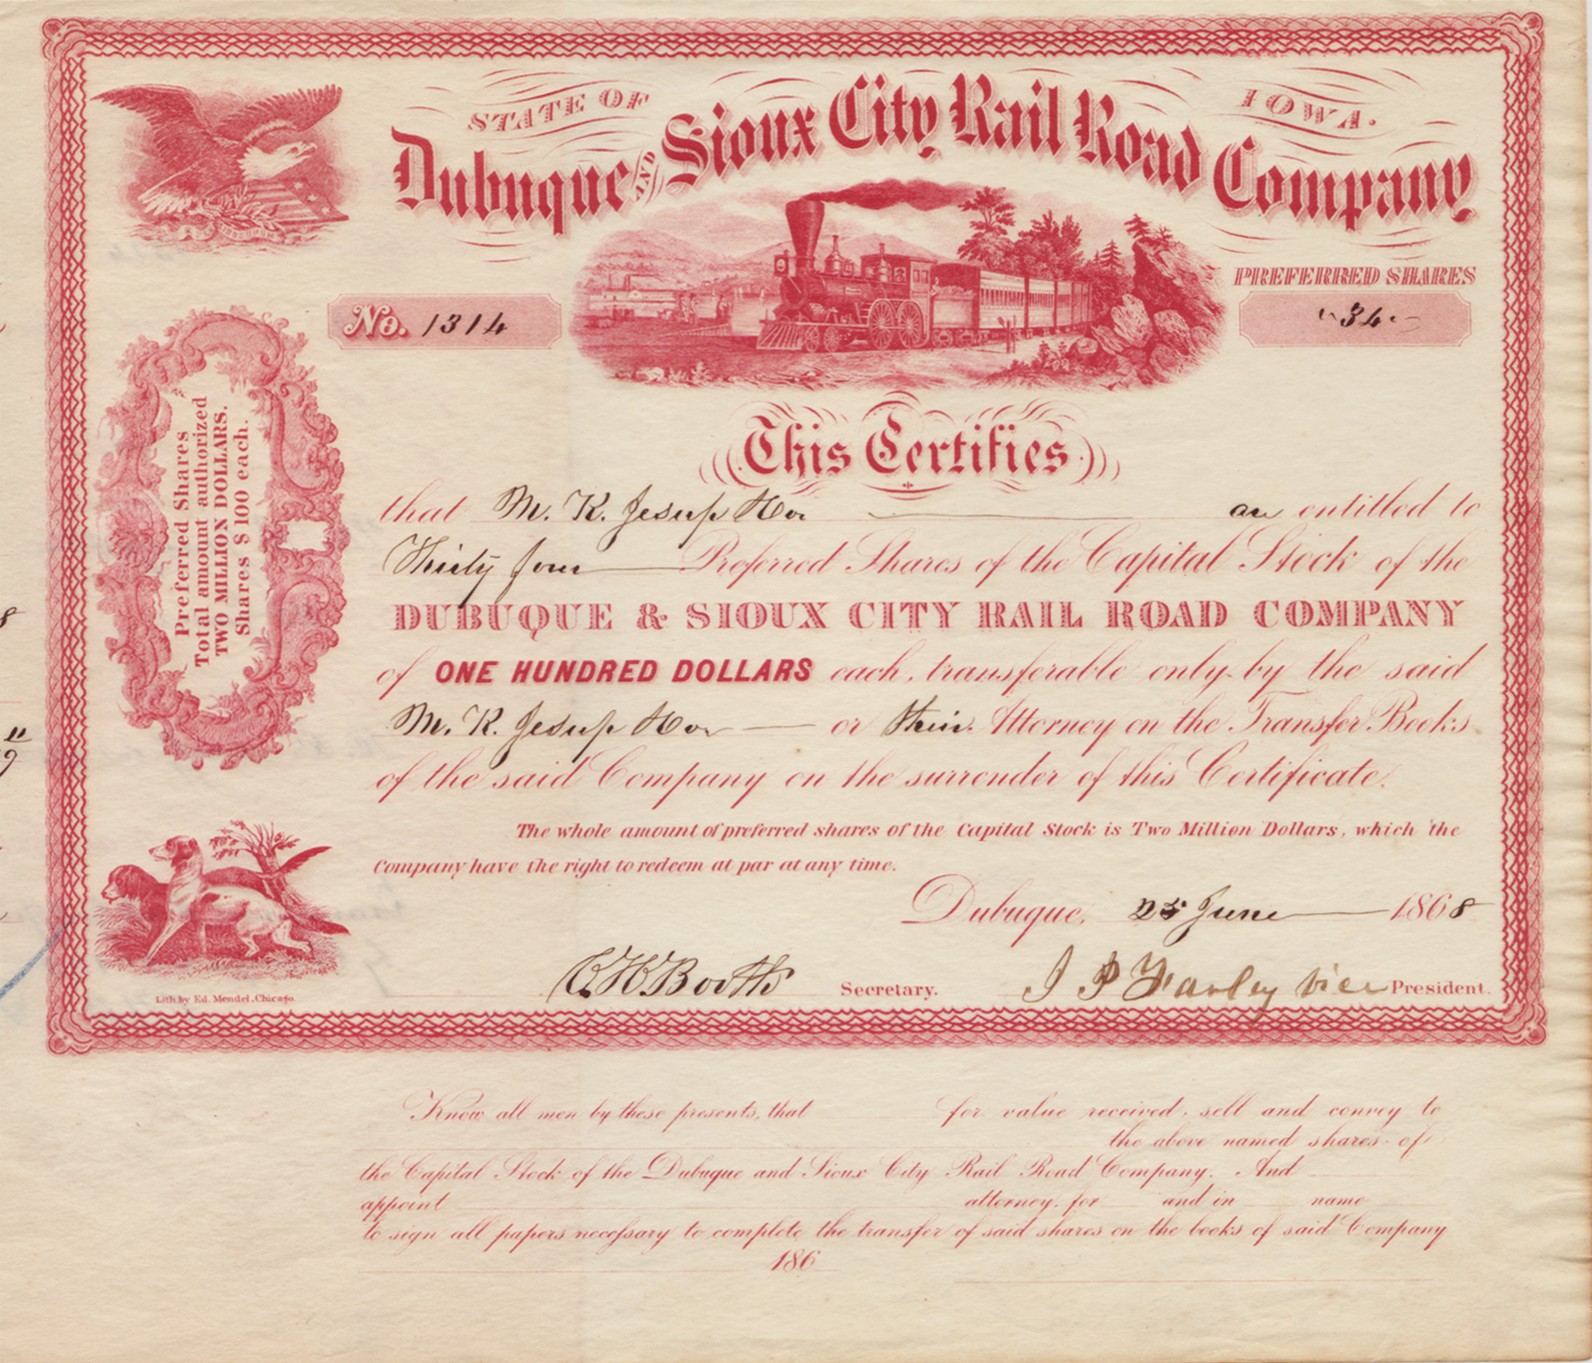 STATE OF IOWA.
Dubuque AND Sioux City Rail Road Company
PREFERRED SHARES
No. 1314
"34"
Preferred Shares
Total amount authorized
TWO MILLION DOLLARS.
Shares $100 each.
This Certifies
that M. K. Jesup & Co are entitled to
Thirty four Preferred Shares of the Capital Stock of the
DUBUQUE & SIOUX CITY RAIL ROAD COMPANY
of ONE HUNDRED DOLLARS each, transferable only by the said
M. K. Jesup & Co or their Attorney on the Transfer Books
of the said Company on the surrender of this Certificate.
The whole amount of preferred shares of the Capital Stock is Two Million Dollars, which the
Company have the right to redeem at par at any time.
Dubuque, 25 June 1868
C H Booth Secretary. J P Farley Vice President.
Lith by Ed. Mendel, Chicago.
Know all men by these presents, that for value received, sell and convey to
the above named shares of
the Capital Stock of the Dubuque and Sioux City Rail Road Company. And
appoint attorney, for and in name
to sign all papers necessary to complete the transfer of said shares on the books of said Company
186